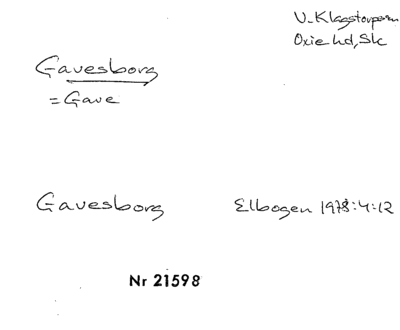 V. Klagstorps sn
Oxie hd, Sk
Gavesborg
= Gave
Gavesborg Elbogen 1978:4:12
Nr 21598